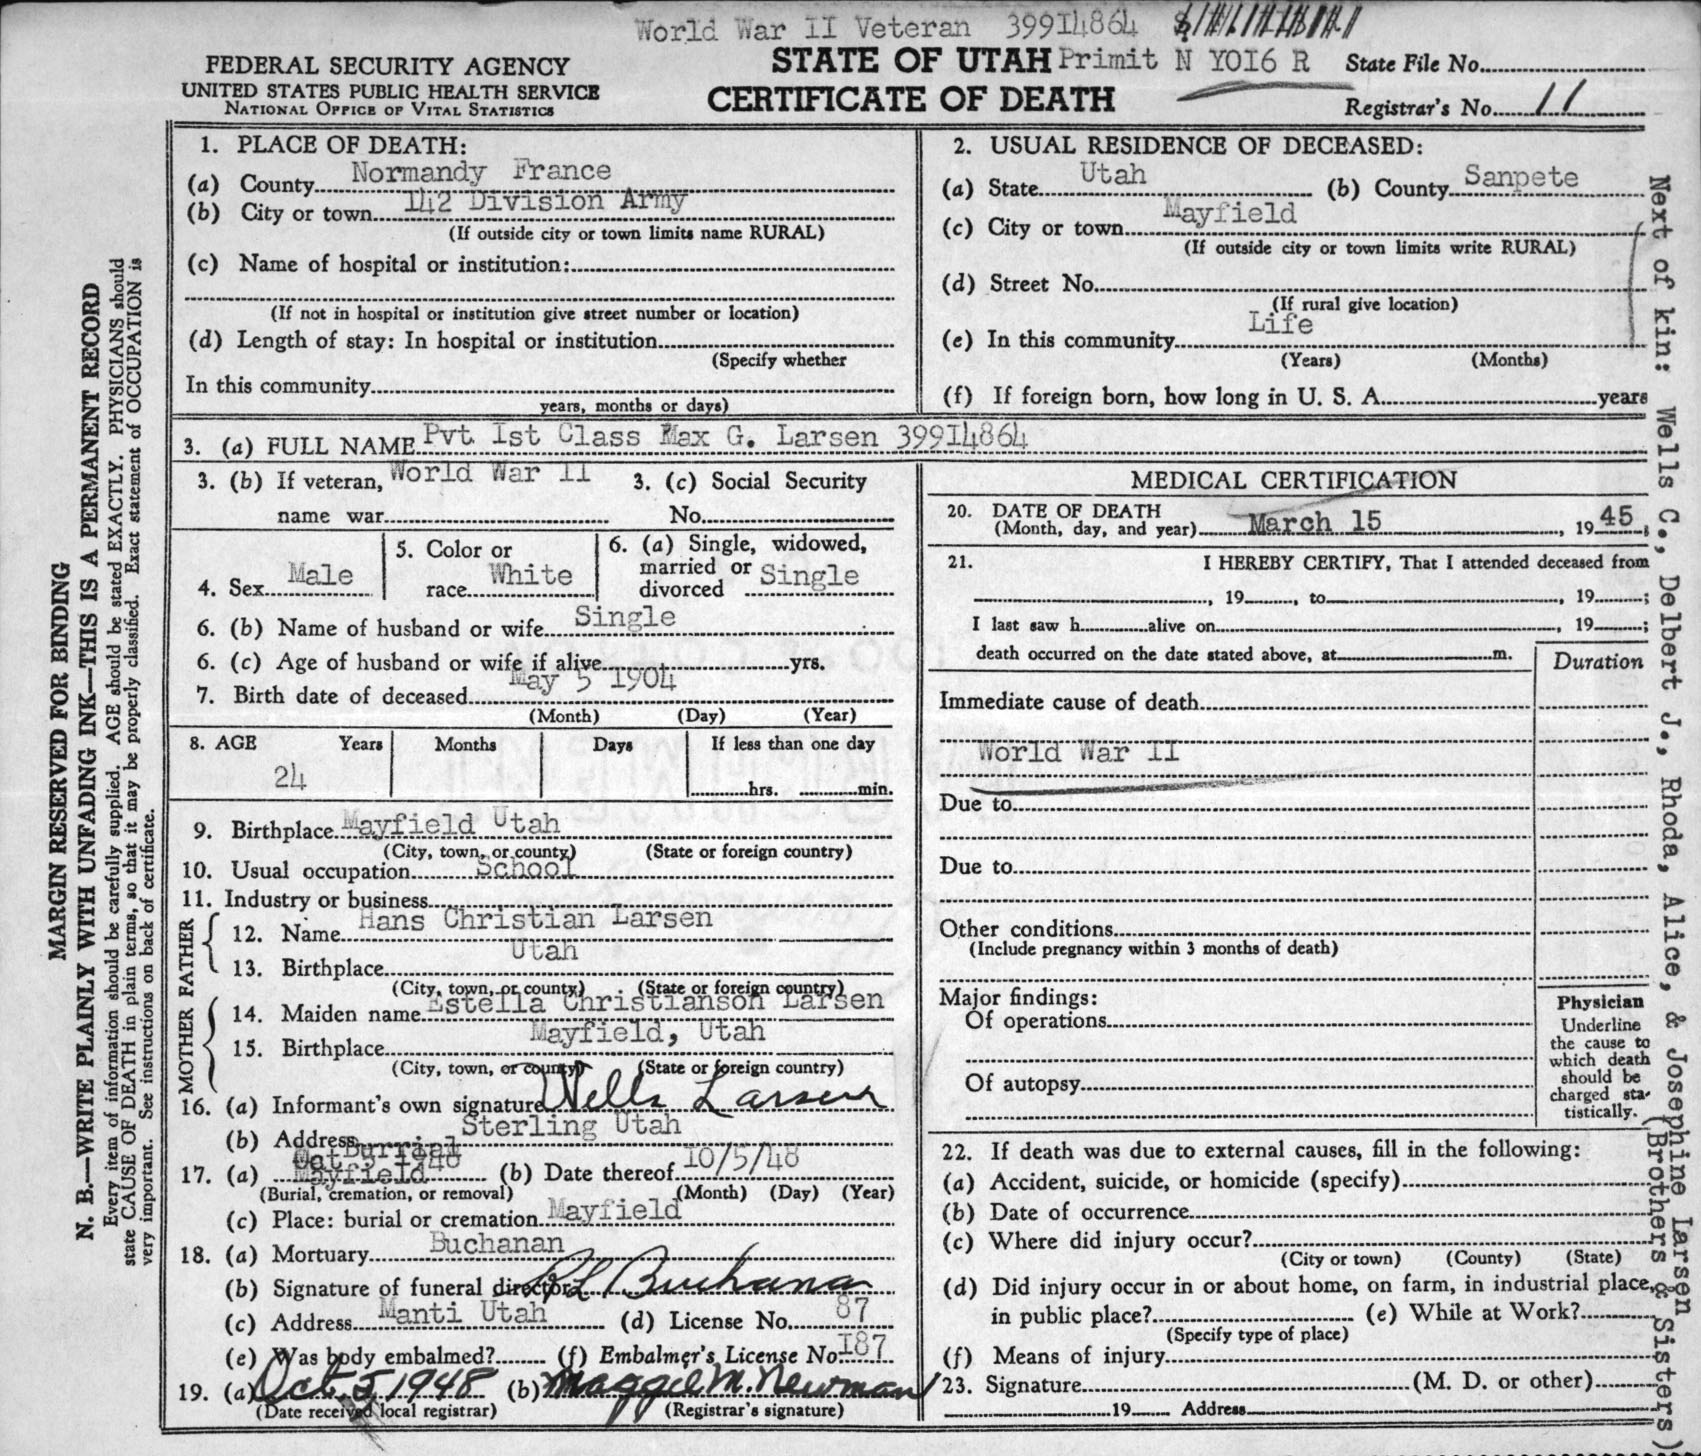 World War II Veteran 39914864
FEDERAL SECURITY AGENCY
UNITED STATES PUBLIC HEALTH SERVICE
NATIONAL OFFICE OF VITAL STATISTICS
STATE OF UTAH Primit N YOI6 R
CERTIFICATE OF DEATH
State File No.
Registrar's No. 11
1. PLACE OF DEATH:
(a) County Normandy France
(b) City or town 142 Division Army
(If outside city or town limits name RURAL)
(c) Name of hospital or institution:
(If not in hospital or institution give street number or location)
(d) Length of stay: In hospital or institution
(Specify whether
In this community
years, months or days)
2. USUAL RESIDENCE OF DECEASED:
(a) State Utah (b) County Sanpete
(c) City or town Mayfield
(If outside city or town limits write RURAL)
(d) Street No.
(If rural give location)
(e) In this community Life
(Years) (Months)
(f) If foreign born, how long in U. S. A. years
3. (a) FULL NAME Pvt Ist Class Max G. Larsen 39914864
3. (b) If veteran, World War II 3. (c) Social Security
name war No.
4. Sex Male
5. Color or
race White
6. (a) Single, widowed,
married or
divorced Single
6. (b) Name of husband or wife Single
6. (c) Age of husband or wife if alive yrs.
7. Birth date of deceased May 5 1904
(Month) (Day) (Year)
8. AGE Years Months Days If less than one day
24 hrs. min.
9. Birthplace Mayfield Utah
(City, town, or county) (State or foreign country)
10. Usual occupation School
11. Industry or business
FATHER
12. Name Hans Christian Larsen
13. Birthplace Utah
(City, town, or county) (State or foreign country)
MOTHER
14. Maiden name Estella Christianson Larsen
15. Birthplace Mayfield, Utah
(City, town, or county) (State or foreign country)
16. (a) Informant's own signature Wells Larsen
(b) Address Sterling Utah
17. (a) Burrial Oct 5 1948 Mayfield (b) Date thereof 10/5/48
(Burial, cremation, or removal) (Month) (Day) (Year)
(c) Place: burial or cremation Mayfield
18. (a) Mortuary Buchanan
(b) Signature of funeral director Buchanan
(c) Address Manti Utah (d) License No. 87
(e) Was body embalmed? (f) Embalmer's License No. I87
19. (a) Oct. 5 1948 (b) Maggie M. Newman
(Date received local registrar) (Registrar's signature)
MEDICAL CERTIFICATION
20. DATE OF DEATH
(Month, day, and year) March 15, 1945
21. I HEREBY CERTIFY, That I attended deceased from
, 19 , to , 19 ;
I last saw h alive on , 19 ;
death occurred on the date stated above, at m.
Duration
Immediate cause of death
World War II
Due to
Due to
Other conditions
(Include pregnancy within 3 months of death)
Major findings:
Of operations
Of autopsy
Physician
Underline
the cause to
which death
should be
charged sta-
tistically.
22. If death was due to external causes, fill in the following:
(a) Accident, suicide, or homicide (specify)
(b) Date of occurrence
(c) Where did injury occur?
(City or town) (County) (State)
(d) Did injury occur in or about home, on farm, in industrial place,
in public place? (e) While at Work?
(Specify type of place)
(f) Means of injury
23. Signature (M. D. or other)
19 Address
MARGIN RESERVED FOR BINDING
N. B.—WRITE PLAINLY WITH UNFADING INK—THIS IS A PERMANENT RECORD
Every item of information should be carefully supplied. AGE should be stated EXACTLY. PHYSICIANS should
state CAUSE OF DEATH in plain terms, so that it may be properly classified. Exact statement of OCCUPATION is
very important. See instructions on back of certificate.
Next of kin: Wells C., Delbert J., Rhoda, Alice, & Josephine Larsen
(Brothers & Sisters)